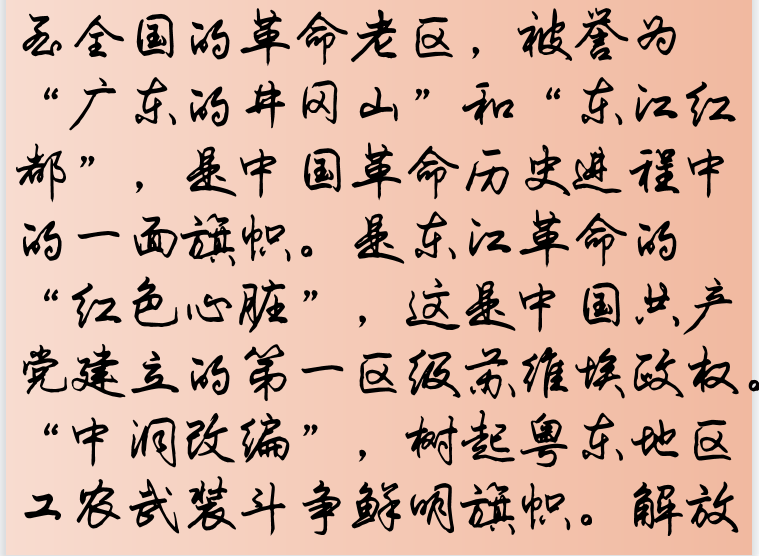 至全国的革命老区，被誉为
“广东的井冈山”和“东江红
都”，是中国革命历史进程中
的一面旗帜。是东江革命的
“红色心脏”，这是中国共产
党建立的第一区级苏维埃政权。
“中洞改编”，树起粤东地区
工农武装斗争鲜明旗帜。解放